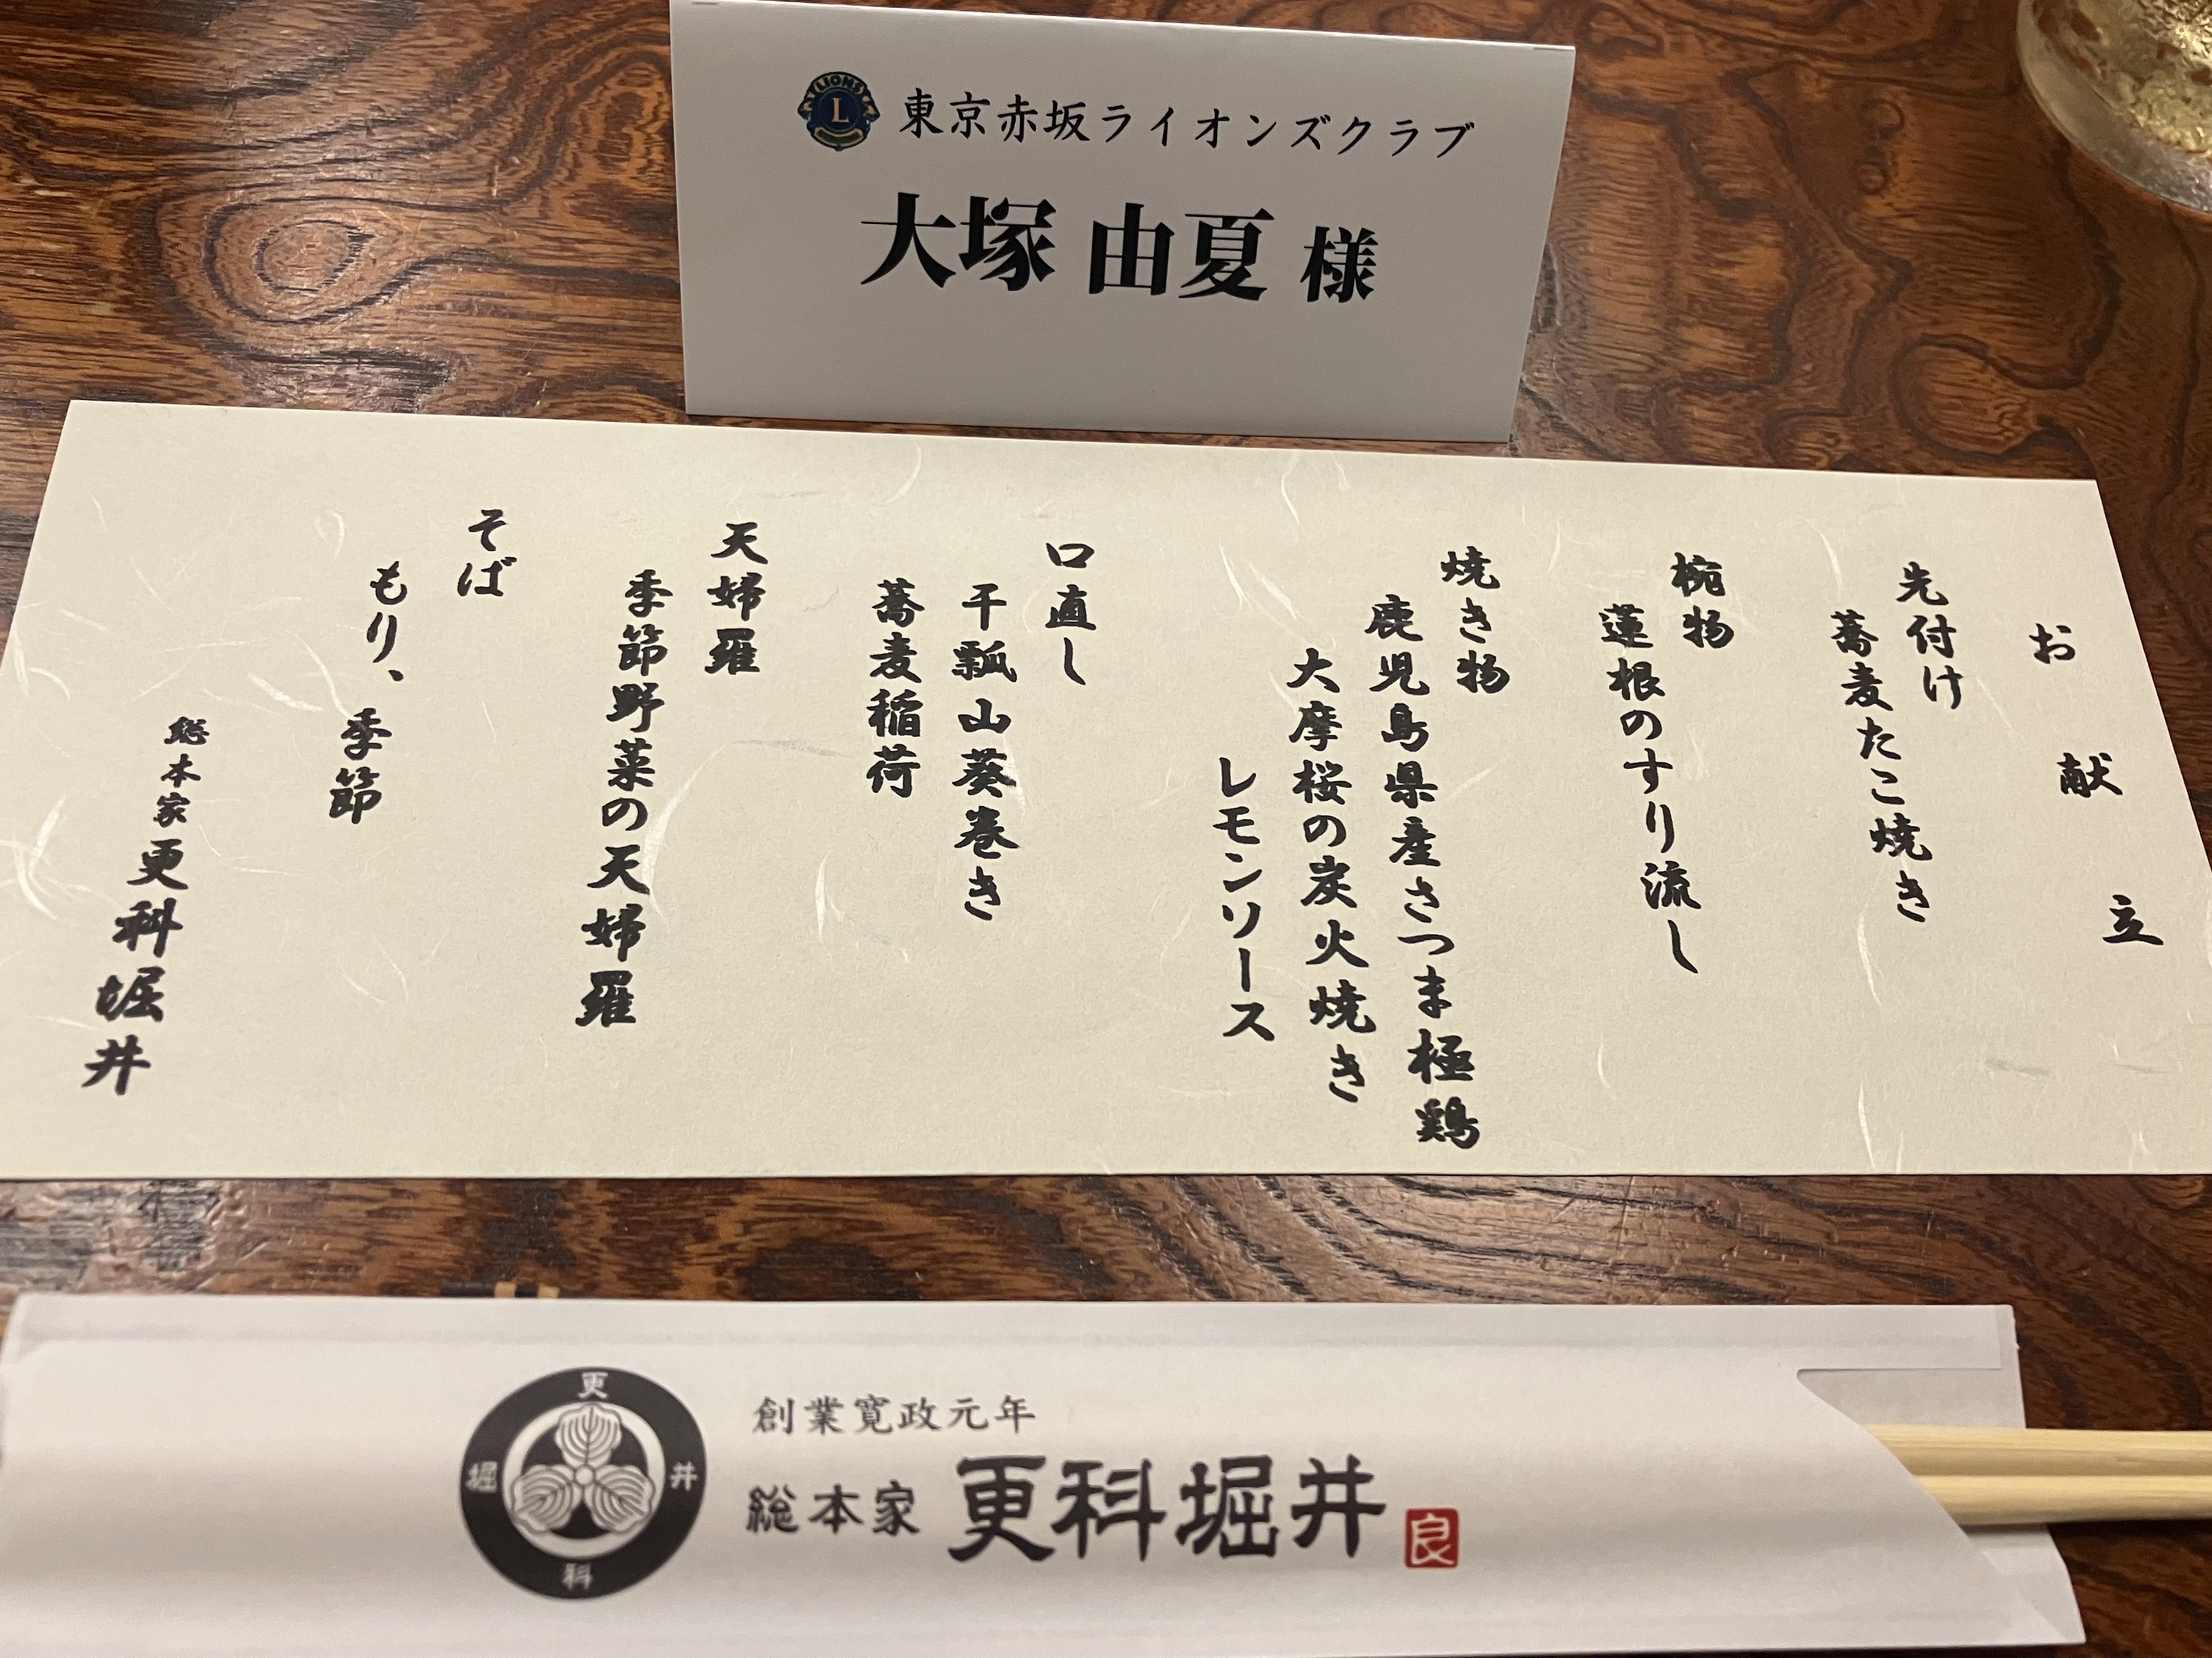 LIONS
L
東京赤坂ライオンズクラブ
大塚 由夏 様
お献立
先付け
蕎麦たこ焼き
椀物
蓮根のすり流し
焼き物
鹿児島県産さつま極鶏
大摩桜の炭火焼き
レモンソース
口直し
干瓢山葵巻き
蕎麦稲荷
天婦羅
季節野菜の天婦羅
そば
もり、季節
総本家更科堀井
更
科
堀
井
創業寛政元年
総本家 更科堀井
良